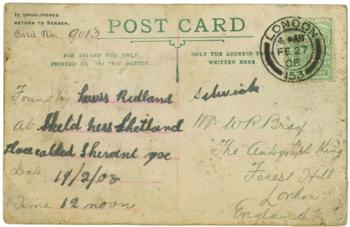 IF UNDELIVERED
RETURN TO SENDER.
Card No. 9013
POST CARD
FOR INLAND USE ONLY.
PRINTED ON THIS MATTER.
ONLY THE ADDRESS TO BE
WRITTEN HERE
LONDON
FE 27
08
153
Found by Lewis Ridland
At Skeld ness Shetland
Place called Sherant goe
Date 19/2/08
Time 12 noon
Selwick
Mr W R Bray
"The Autograph King"
Forest Hill
London
England